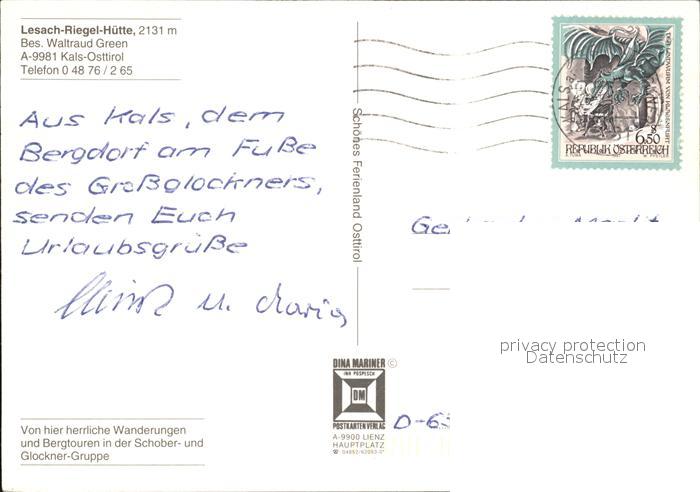 Lesach-Riegel-Hütte, 2131 m
Bes. Waltraud Green
A-9981 Kals-Osttirol
Telefon 0 48 76 / 2 65
Aus Kals, dem
Bergdorf am Fuße
des Großglockners,
senden Euch
Urlaubsgrüße
u. Maria
Von hier herrliche Wanderungen
und Bergtouren in der Schober- und
Glockner-Gruppe
Schönes Ferienland Osttirol
DINA MARINER ©
IHR POSPESCH
DM
POSTKARTENVERLAG
A-9900 LIENZ
HAUPTPLATZ
DER LINDWURM VON KLAGENFURT
KALS
6.50
REPUBLIK ÖSTERREICH
privacy protection
Datenschutz
D-6